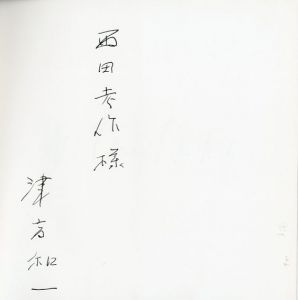 西田考作様
津高和一